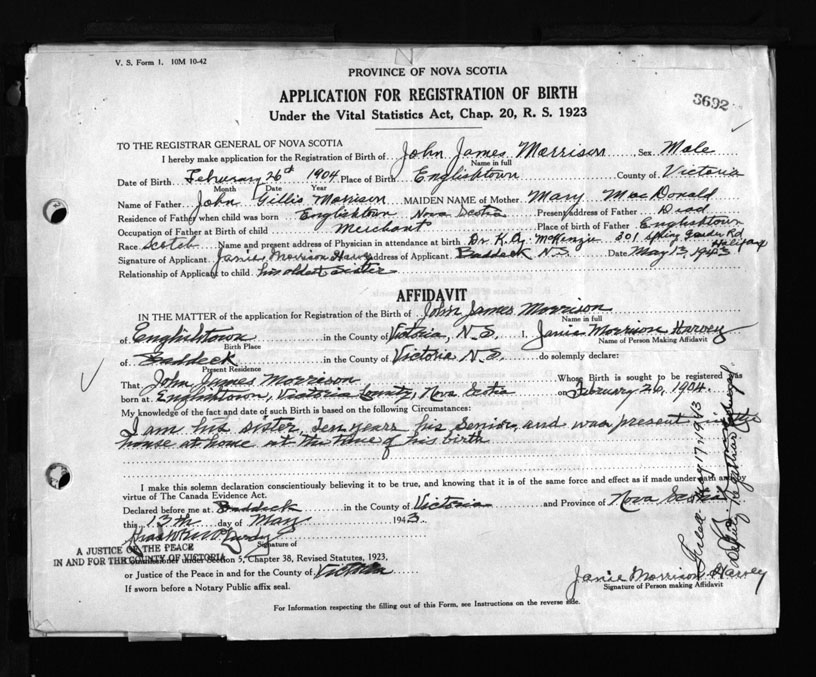 V. S. Form 1. 10M 10-42
PROVINCE OF NOVA SCOTIA
3692
APPLICATION FOR REGISTRATION OF BIRTH
Under the Vital Statistics Act, Chap. 20, R. S. 1923
TO THE REGISTRAR GENERAL OF NOVA SCOTIA
I hereby make application for the Registration of Birth of John James Morrison Sex Male
Name in full
Date of Birth February 26th 1904 Place of Birth Englishtown County of Victoria
Month Date Year
Name of Father John Gillis Morrison MAIDEN NAME of Mother Mary MacDonald
Residence of Father when child was born Englishtown Nova Scotia Present Address of Father Dead
Occupation of Father at Birth of child Merchant Place of birth of Father Englishtown
Race Scotch Name and present address of Physician in attendance at birth Dr. K. A. McKenzie 301 Spring Garden Rd Halifax
Signature of Applicant Janie Morrison Harvey Address of Applicant Baddeck N.S. Date May 13, 1943
Relationship of Applicant to child his oldest sister
AFFIDAVIT
IN THE MATTER of the application for Registration of the Birth of John James Morrison
Name in full
of Englishtown in the County of Victoria, N.S. I, Janie Morrison Harvey
Birth Place Name of Person Making Affidavit
of Baddeck in the County of Victoria N.S. do solemnly declare:
Present Residence
That John James Morrison Whose Birth is sought to be registered was
born at Englishtown, Victoria County, Nova Scotia on February 26, 1904.
My knowledge of the fact and date of such Birth is based on the following Circumstances:
I am his sister, ten years his senior, and was present in the
house at home at the time of his birth
I make this solemn declaration conscientiously believing it to be true, and knowing that it is of the same force and effect as if made under oath and by
virtue of The Canada Evidence Act.
Declared before me at Baddeck in the County of Victoria and Province of Nova Scotia
this 13th day of May 1943.
Signature of
A JUSTICE OF THE PEACE
IN AND FOR THE COUNTY OF VICTORIA
Commissioner under Section 5, Chapter 38, Revised Statutes, 1923,
or Justice of the Peace in and for the County of Victoria
If sworn before a Notary Public affix seal.
Janie Morrison Harvey
Signature of Person making Affidavit
For Information respecting the filling out of this Form, see Instructions on the reverse side.
May 17, 1943